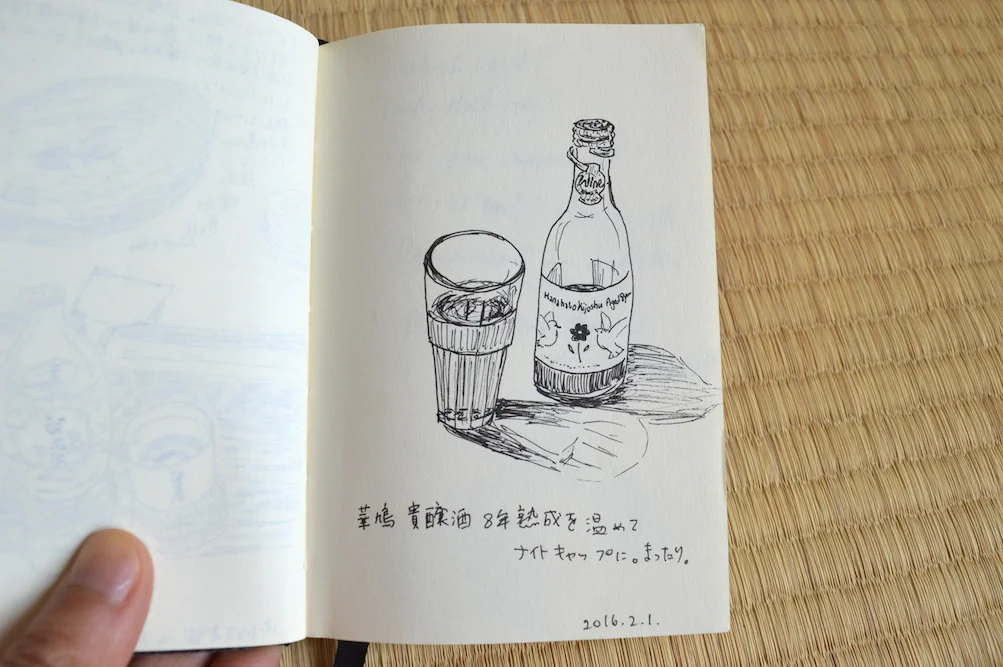 Wine
Hanahato Kijoshu Aged 8year
華鳩 貴醸酒 8年熟成を温めて
ナイトキャップに。まったり。
2016.2.1.